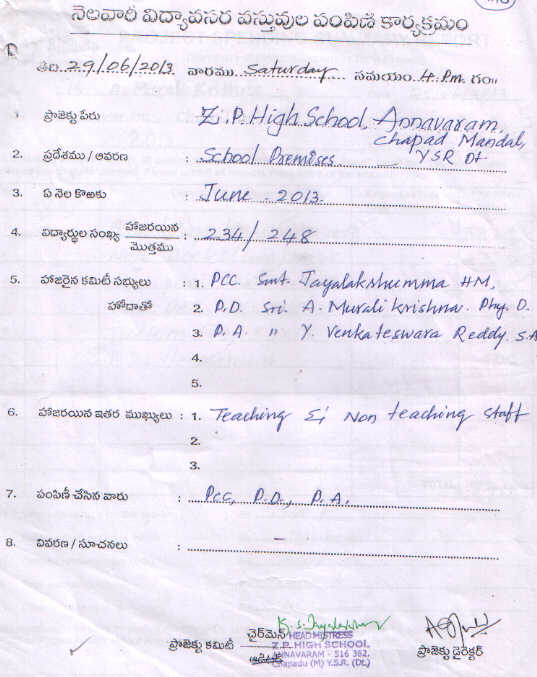 నెలవారీ విద్యావసర వస్తువుల పంపిణీ కార్యక్రమం
తేది. 29/06/2013 వారము Saturday సమయం 4 P.m. గం॥
1. ప్రాజెక్టు పేరు Z.P. High School, Annavaram,
Chapad Mandal,
YSR Dt
2. ప్రదేశము / ఆవరణ : School Premises
3. ఏ నెల కొఱకు : June - 2013.
4. విద్యార్థుల సంఖ్య హాజరయిన / మొత్తము : 234/248
5. హాజరైన కమిటీ సభ్యులు : 1. PCC. Smt. Jayalakshumma HM,
హోదాతో 2. P.D. Sri. A. Murali krishna. Phy. D.
3. P.A. " Y. Venkateswara Reddy S.A
4.
5.
6. హాజరయిన ఇతర ముఖ్యులు : 1. Teaching & Non teaching staff
2.
3.
7. పంపిణీ చేసిన వారు : PCC, P.D., P.A.
8. వివరణ / సూచనలు : –
ప్రాజెక్టు కమిటీ ఛైర్మెన్
HEAD MISTRESS
Z.P. HIGH SCHOOL,
ANNAVARAM - 516 362.
Chapadu (M) Y.S.R. (Dt.)
ప్రాజెక్టు డైరెక్టర్